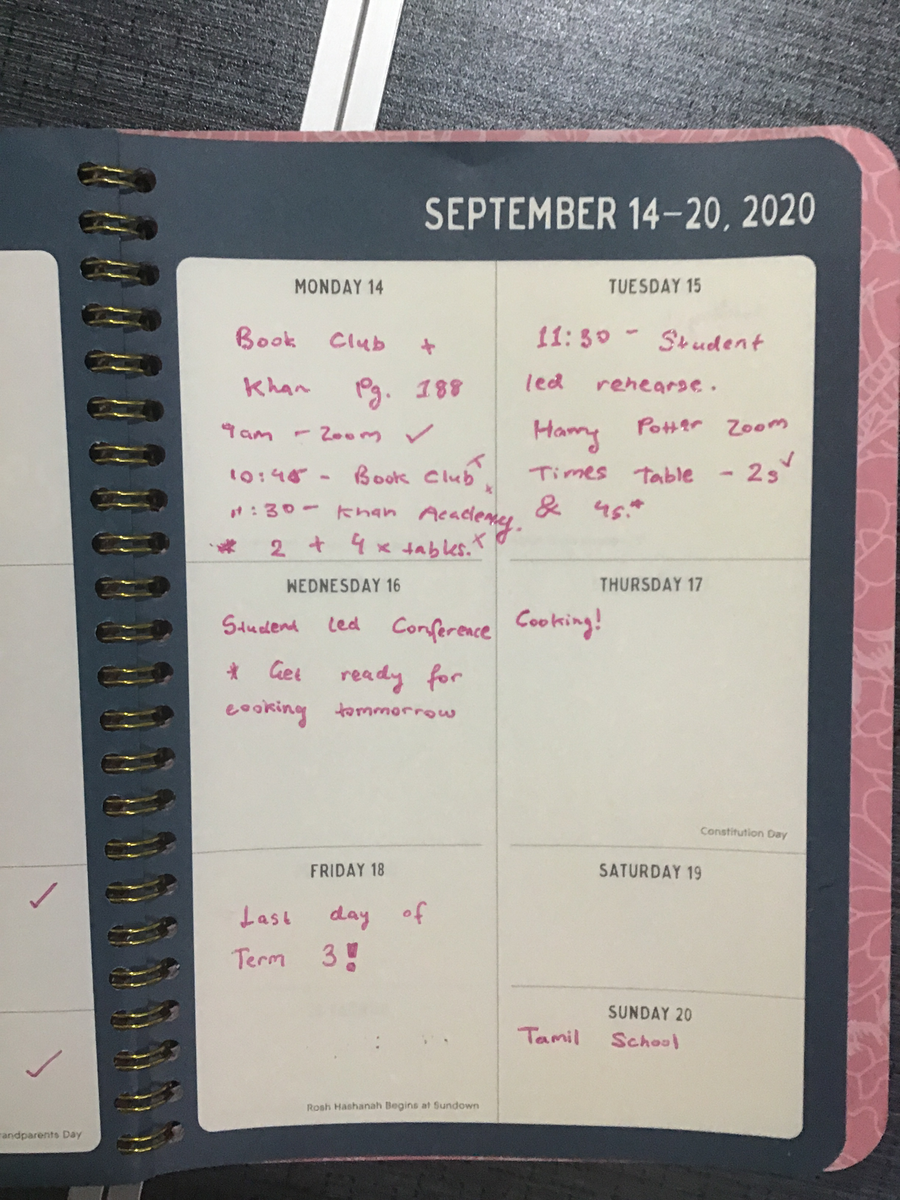 SEPTEMBER 14–20, 2020
MONDAY 14
Book Club +
Khan Pg. 188
9am - Zoom ✓
10:45 - Book Club x
11:30 - Khan Academy. x
* 2 + 4 x tables. x
TUESDAY 15
11:30 - Student
led rehearse.
Harry Potter Zoom
Times Table - 2s ✓
& 4s.*
WEDNESDAY 16
Student led Conference
* Get ready for
cooking tommorrow
THURSDAY 17
Cooking!
Constitution Day
FRIDAY 18
Last day of
Term 3!
Rosh Hashanah Begins at Sundown
SATURDAY 19
SUNDAY 20
Tamil School
andparents Day